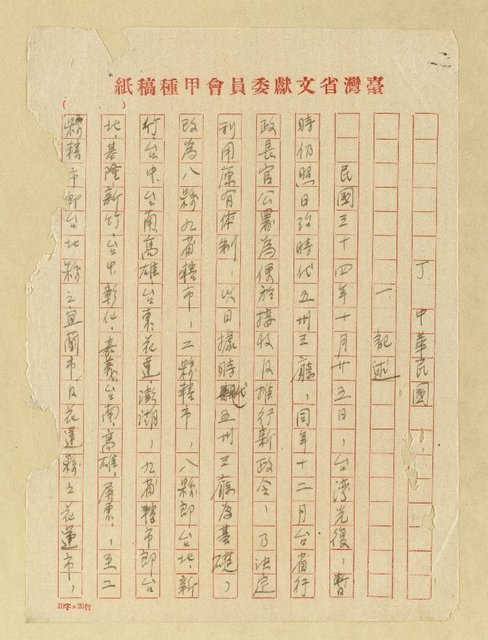 臺灣省文獻委員會甲種稿紙
(　　)
丁　中華民國
一　記述
民國三十四年十月廿五日，台湾光復，暫
時仍照日治時代五州三廳，同年十二月台省行
政長官公署為便於接收及推行新政令，乃決定
利用原有体制，以日據時代五州三廳為基礎，
改為八縣九省轄市，二縣轄市，八縣即台北、新
竹、台中、台南、高雄、台東、花蓮、澎湖，九省轄市即台
北、基隆、新竹、台中、彰化、嘉義、台南、高雄、屏東，至二
縣轄市即台北縣之宜蘭市，及花蓮縣之花蓮市，
20字×20行